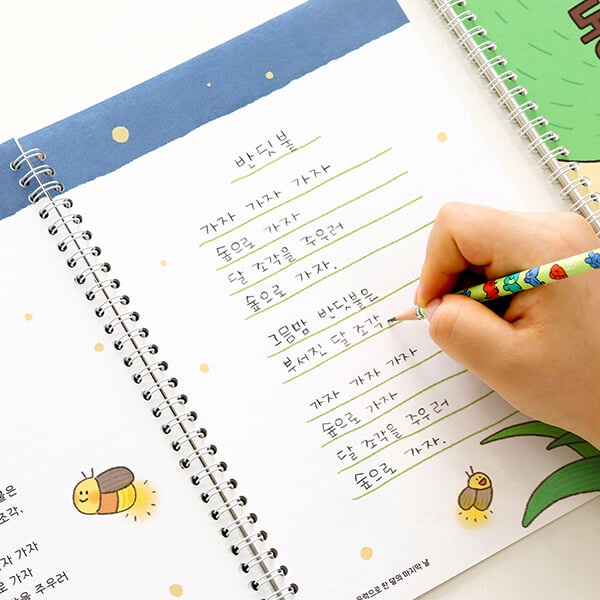 반딧불
가자 가자 가자
숲으로 가자
달 조각을 주우러
숲으로 가자.
그믐밤 반딧불은
부서진 달 조각
가자 가자 가자
숲으로 가자
달 조각을 주우러
숲으로 가자.
음력으로 한 달의 마지막 날
불은
조각.
자 가자
가자
을 주우러